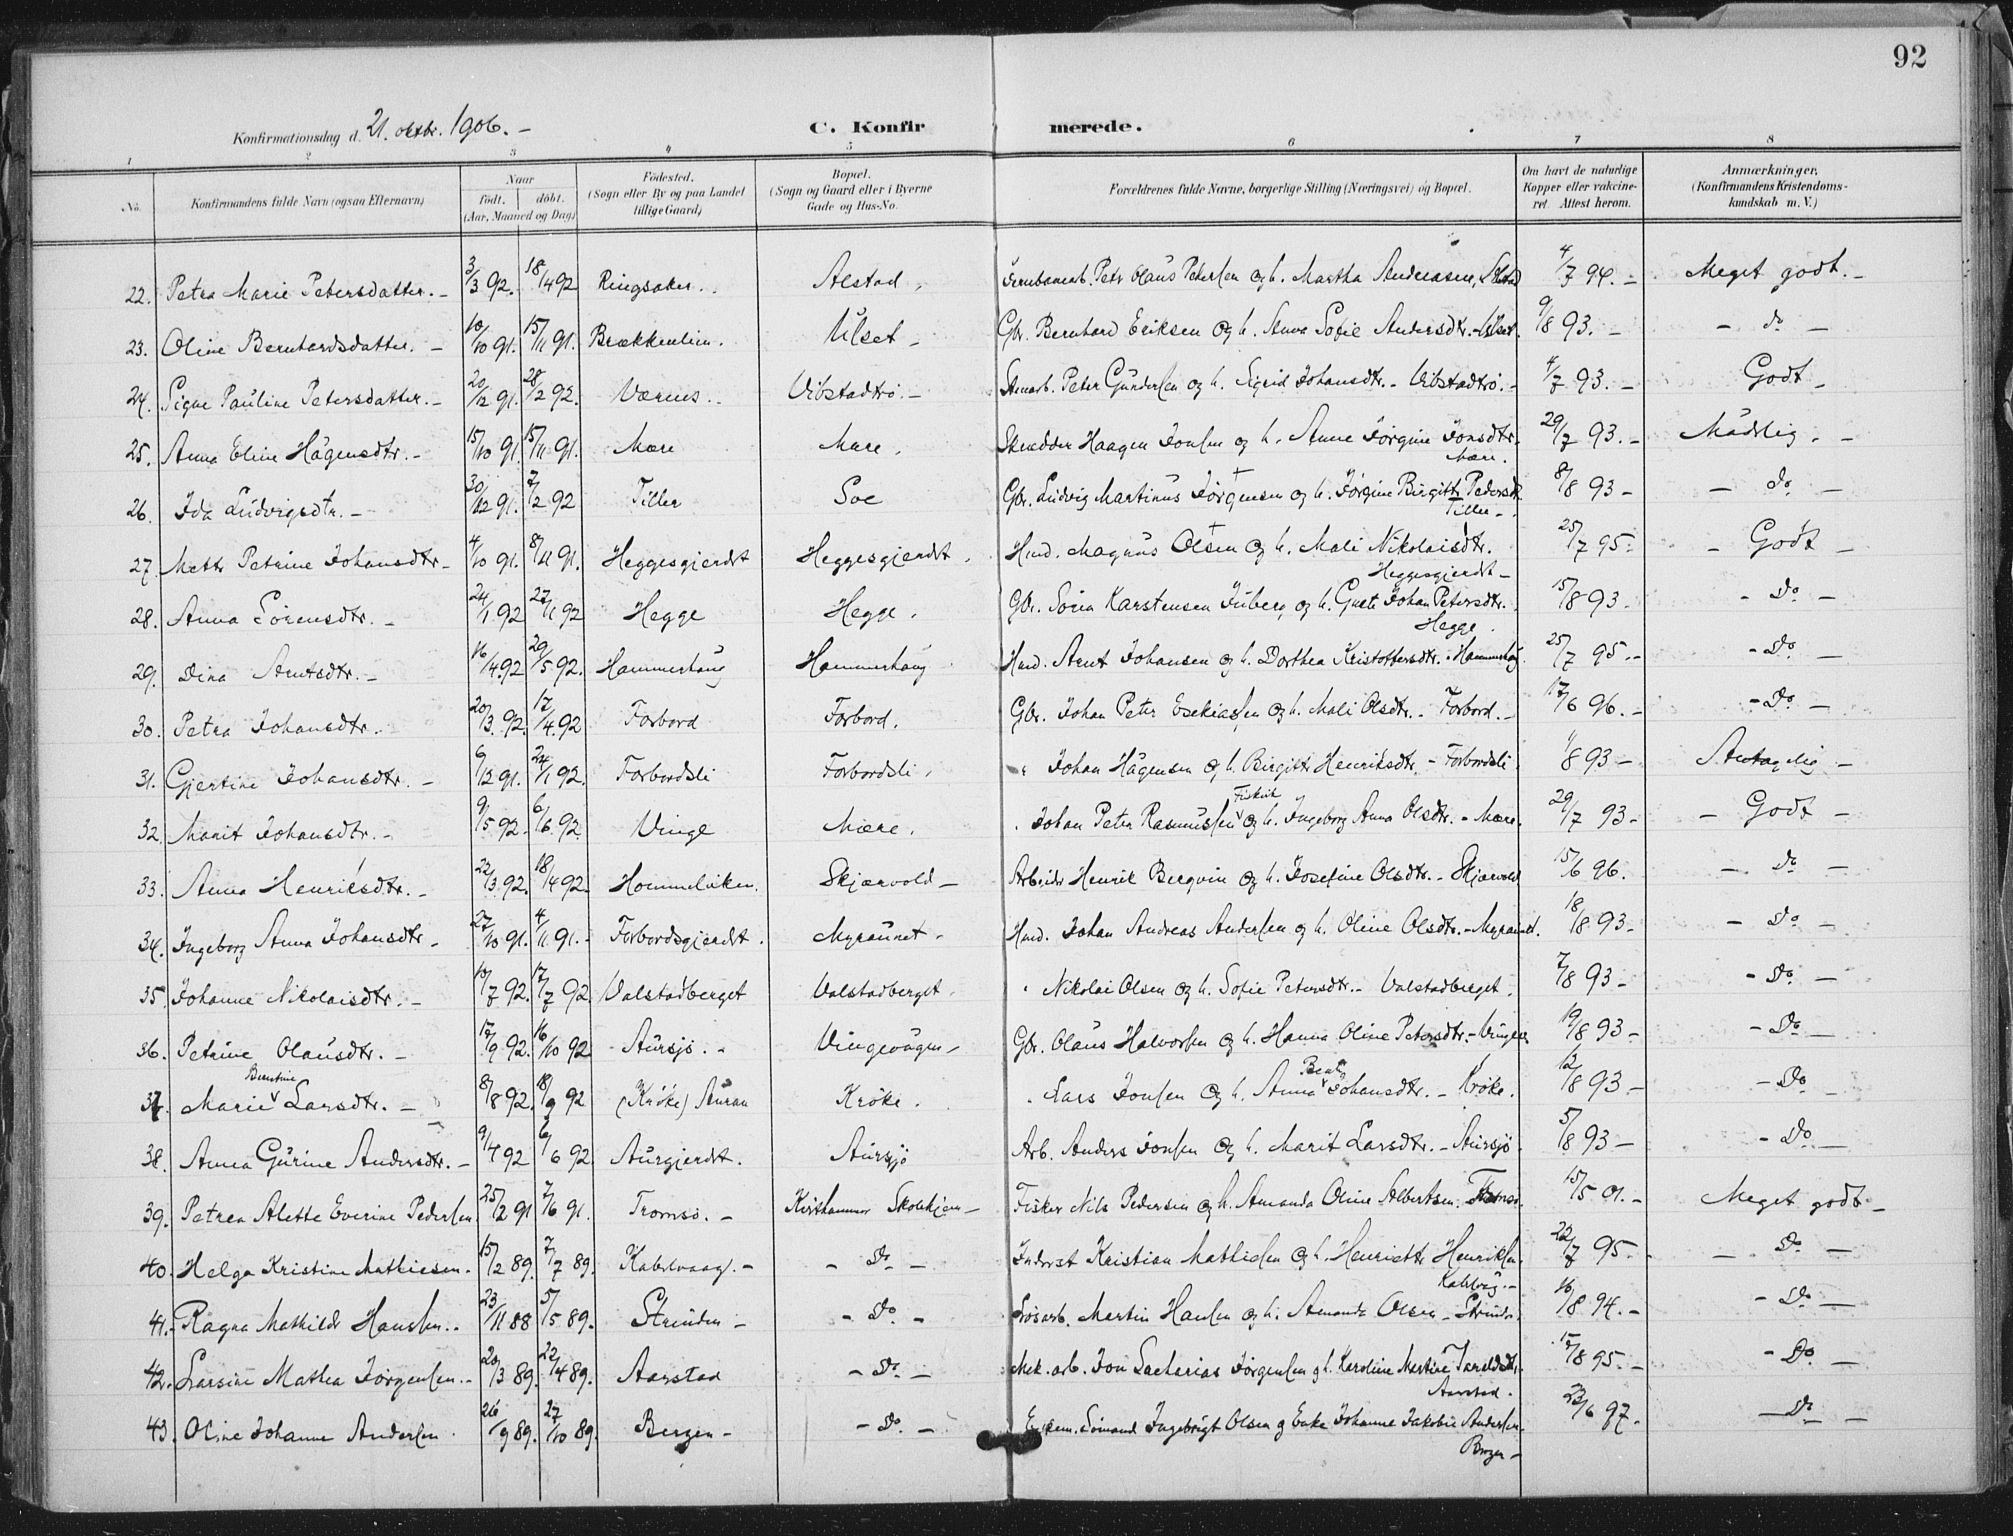 92
Konfirmationsdag d. 21. oktbr. 1906. –
C. Konfirmerede.
1 2 3 4 5 6 7 8
No. Konfirmandens fulde Navn (ogsaa Efternavn) Naar født. døbt. (Aar, Maaned og Dag) Fødested. (Sogn eller By og paa Landet tillige Gaard) Bopæl. (Sogn og Gaard eller i Byerne Gade og Hus-No. Forældrenes fulde Navne, borgerlige Stilling (Næringsvei) og Bopæl. Om havt de naturlige Kopper eller vakcineret. Attest herom. Anmærkninger. (Konfirmandens Kristendomskundskab m. V.)
22. Petra Marie Petersdatter. – 3/3 92. 18/4 92 Ringsaker. Alstad. Petr Olaus Petersen og h. Martha Andreasen, Alstad 4/7 94. – Meget godt. –
23. Oline Bernhardsdatter. – 10/10 91. 15/11 91. Brækkenlien. Ulset – Gbr. Bernhard Eriksen og h. Anna Sofie Andersdtr. – Ulset. 9/8 93. – – do –
24. Signe Pauline Petersdatter. – 20/12 91. 28/2 92. Værnes. Vibstadtrø. – Stenarb. Peter Gundersen og h. Sigrid Johansdtr. – Vibstadtrø. – 4/7 93. – Godt –
25. Anna Eline Hågensdtr. – 15/10 91. 15/11 91. Mære Mære. Skrædder Haagen Jonsen og h. Anne Jørgine Jonsdtr. 29/7 93. – Mådelig. –
Mære.
26. Ida Ludvigsdtr. – 30/12 91. 7/2 92 Tiller Soe Gbr. Ludvig Martinus Jørgensen † og h. Jørgine Birgitte Pedersdt. 8/8 93 – – do –
Tiller –
27. Mette Petrine Johansdtr – 4/10 91. 8/11 91. Heggesgjerdet Heggesgjerdet. Hmd. Magnus Olsen † og h. Mali Nikolaisdtr. 25/7 95. – Godt –
Heggesgjerdet –
28. Anna Sørensdtr. – 24/1 92 27/1 92 Hegge Hegge. Gbr. Søren Karstensen Juberg og h. Grete Johan Petersdtr. 15/8 93. – Do –
Hegge.
29. Dina Arntsdtr. – 16/4 92 29/5 92. Hammerhaug Hammerhaug Hmd. Arnt Johansen og h. Dorthea Kristoffersdtr. – Hammerhaug. 25/7 95. – – Do –
30. Petra Johansdtr. 20/3. 92. 17/4. 92 Forbord Forbord. Gbr. Johan Peter Esekiassen og h. Mali Olsdtr. – Forbord. – 17/6 96. – – Do –
31. Gjertine Johansdtr. – 6/12 91. 24/1 92. Forbordsli Forbordsli. " Johan Hågensen og h. Birgitte Henriksdtr – Forbordsli. 1/8 93 – Antagelig –
32. Marit Johansdtr. – 9/5 92 – 6/6. 92. Vinge Mære. " Johan Peter Rasmussen Fiskvik og h. Ingeborg Anna Olsdtr. – Mære. 29/7 93 – – Godt –
33. Anna Henriksdtr. – 22/3. 92. 18/4 92 Hommelviken. Skjærvold – Arbeider Henrik Bergvin og h. Josefine Olsdtr. – Skjærvold 15/6 96. – do –
34. Ingeborg Anna Johansdtr – 27/10 91. 4/11 91. – Forbordsgjerdet. Myraunet. Hmd. Johan Andreas Andersen og h. Oline Olsdtr. – Myraunet. 18/8 93 – – do –
35. Johanne Nikolaisdtr. – 10/7 92. 17/7 92 Valstadberget Valstadberget. " Nikolai Olsen og h. Sofie Petersdtr. – Valstadberget. 7/8 93 – – Do –
36. Petrine Olausdtr. – 17/9 92. 16/10 92 Aursjø. – Vingevågen – Gbr. Olaus Halvorsen og h. Hanna Oline Petersdtr. – 19/8 93 – – Do –
37. Marie Berntine Larsdtr. – 8/8 92. 18/9 92 (Krøke) Auran Krøke. " Lars Jonsen og h. Anna Beate Johansdtr. – Krøke. 12/8 93 – – Do –
38. Anna Gurine Andersdtr. – 9/4 92 6/6 92. Aurgjerdet. Aursjø Arb. Anders Jonsen og h. Marit Larsdtr. – Aursjø. 5/8 93 – – Do –
39. Petrea Alette Everine Pedersen. 25/2 91 7/6 91. Tromsø. – Kirkhammer Skolehjem – Fisker Nils Pedersen og h. Amanda Oline Albertsen. Tromsø. 15/5 01. – Meget godt. –
40. Helga Kristine Mathiesen. 15/2 89. 7/7 89. Kabelvaag. – – Do – Inderst Kristian Mathiesen og h. Henriette Henriksen. 22/7 95. – – Do –
Kabelvåg. –
41. Ragna Mathilde Hanssen. – 23/11 88 5/5 89. Strinden – – Do. – Løsarb. Martin Hansen og h. Amanda Olsen – Strinden. 16/8 94. – – Do –
42. Larsine Mathea Jørgensen. – 20/3 89. 22/4 89. Aarstad – Do. – Mek. arb. Jon Sacharias Jørgensen og h. Karoline Martine 17/8 95. – – Do. –
Aarstad.
43. Oline Johanne Andersen. 26/9 89. 27/10 89. Bergen – – Do. – Sømand Ingebrigt Olsen og Enke Johanne Jakobie Andersen 23/6 97. – Do –
Bergen –